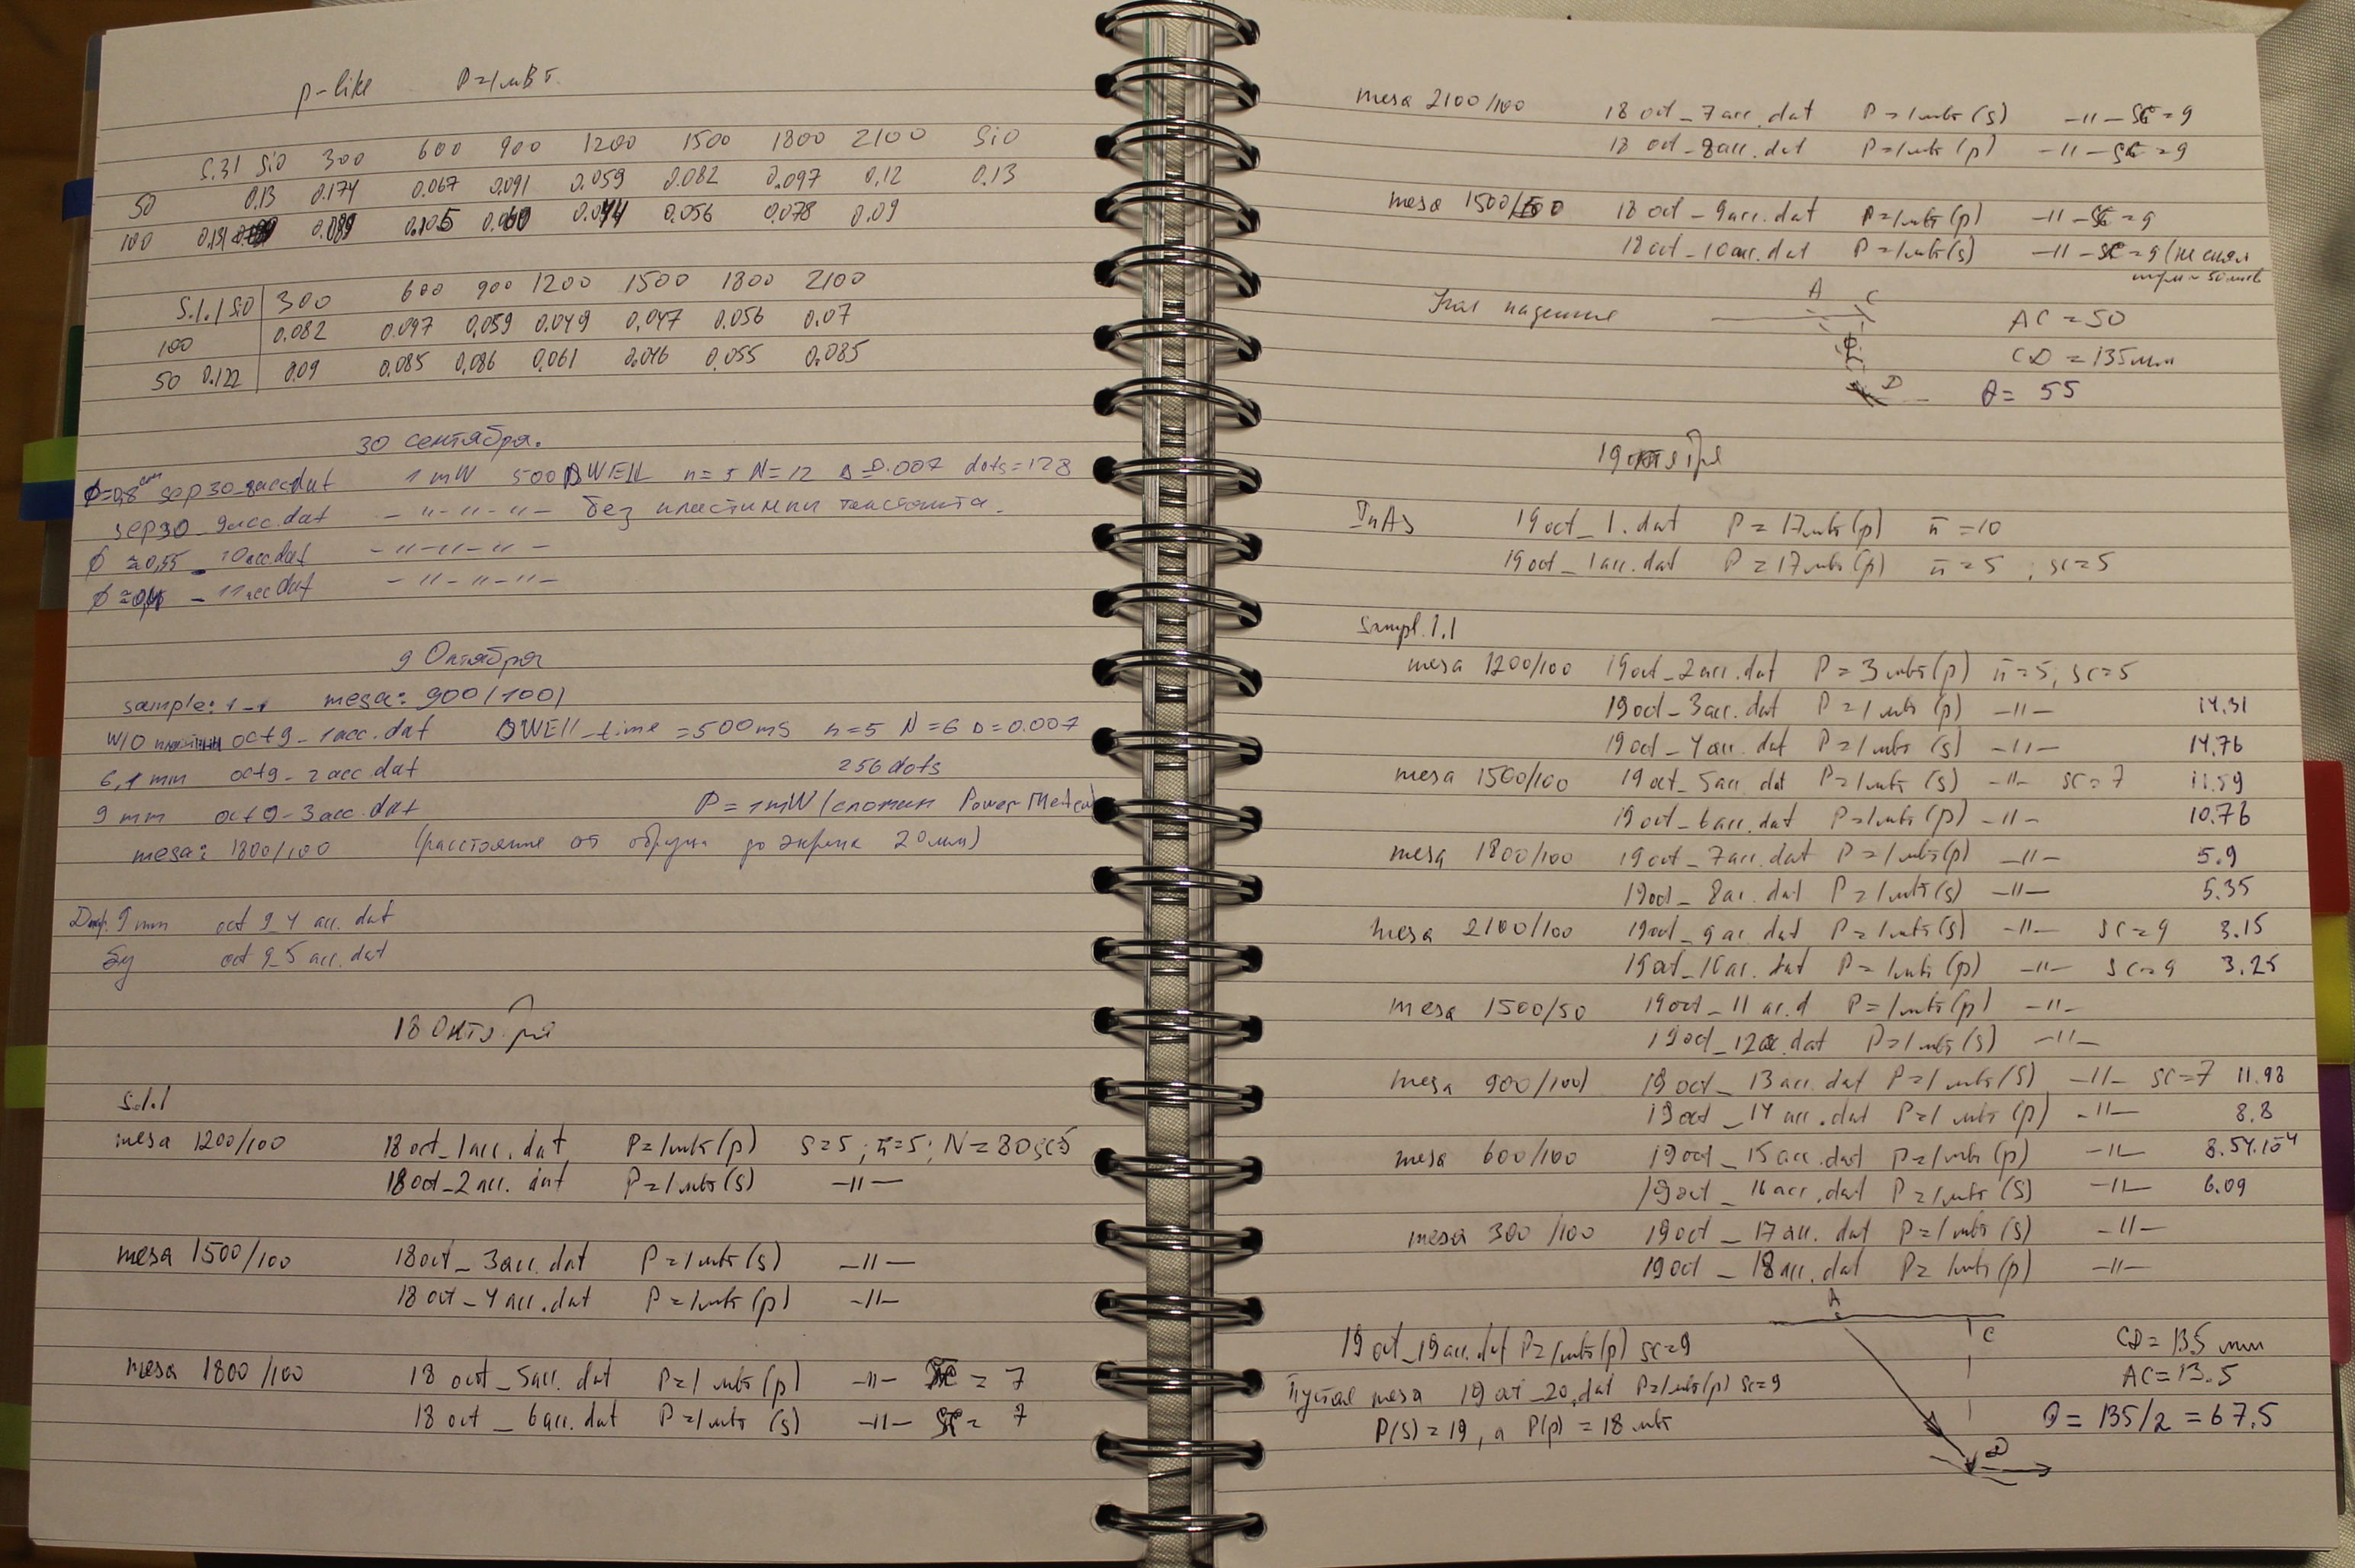 p-like P=1мВт.
S.31 SiO 300 600 900 1200 1500 1800 2100 SiO
50 0.13 0.174 0.067 0.091 0.059 0.082 0.097 0.12 0.13
100 0.131 0.089 0.105 0.060 0.044 0.056 0.078 0.09
S.1.1 SiO 300 600 900 1200 1500 1800 2100
100 0.082 0.097 0.059 0.049 0.047 0.056 0.07
50 0.122 0.09 0.085 0.086 0.061 0.046 0.055 0.085
30 сентября.
ϕ=0,8 cm sep30_8acc.dat 1 mW 500 DWEll n=5 N=12 Δ=0.007 dots=128
sep30_9acc.dat –"–"–"– без пластинки
ϕ≈0,55 _10acc.dat –"–"–"–
_11acc.dat –"–"–"–
9 Октября
sample: 1-1 mesa: 900/100)
W/O oct9_1acc.dat DWEll_time =500ms n=5 N=6 Δ=0.007
6,1 mm oct9_2acc.dat 256 dots
9 mm oct9_3acc.dat P=1mW (сломан Power Metеr)
mesa: 1800/100 (расстояние от образца до экрана 20мм)
9 mm oct 9_4 acc.dat
oct 9_5 acc.dat
18 Октября
S.1.1
mesa 1200/100 18oct_1acc.dat P=1мвт(p) S=5; n̄=5; N=30 sc=5
18oct_2acc.dat P=1мвт(s) –"–
mesa 1500/100 18oct_3acc.dat P=1мвт(s) –"–
18oct_4acc.dat P=1мвт(p) –"–
mesa 1800/100 18oct_5acc.dat P=1мвт(p) –"– sc=7
18oct_6acc.dat P=1мвт(s) –"– sc=7
mesa 2100/100 18oct_7acc.dat P=1мвт(s) –"– sc=9
18oct_8acc.dat P=1мвт(p) –"– sc=9
mesa 1500/100 18oct_9acc.dat P=1мвт(p) –"– sc=9
18oct_10acc.dat P=1мвт(s) –"– sc=9
Угол падения A C AC=50
CD=135мм
D θ=55
19 октября
InAs 19oct_1.dat P=17мвт(p) n̄=10
19oct_1acc.dat P=17мвт(p) n̄=5; sc=5
Sampl.1.1
mesa 1200/100 19oct_2acc.dat P=3мвт(p) n̄=5; sc=5
19oct_3acc.dat P=1мвт(p) –"– 14.31
19oct_4acc.dat P=1мвт(s) –"– 14.76
mesa 1500/100 19oct_5acc.dat P=1мвт(s) –"– sc=7 11.59
19oct_6acc.dat P=1мвт(p) –"– 10.76
mesa 1800/100 19oct_7acc.dat P=1мвт(p) –"– 5.9
19oct_8ac.dat P=1мвт(s) –"– 5.35
mesa 2100/100 19oct_9ac.dat P=1мвт(s) –"– sc=9 3.15
19oct_10ac.dat P=1мвт(p) –"– sc=9 3.25
mesa 1500/50 19oct_11ac.d P=1мвт(p) –"–
19oct_12ac.dat P=1мвт(s) –"–
mesa 900/100) 19oct_13acc.dat P=1мвт(s) –"– sc=7 11.98
19oct_14acc.dat P=1мвт(p) –"– 8.8
mesa 600/100 19oct_15acc.dat P=1мвт(p) –"– 8.54.10⁻⁴
19oct_16acc.dat P=1мвт(s) –"– 6.09
mesa 300/100 19oct_17acc.dat P=1мвт(s) –"–
19oct_18acc.dat P=1мвт(p) –"–
A
19oct_19acc.dat P=1мвт(p) sc=9 C CD=135 мм
Пустая mesa 19oct_20.dat P=1мвт(p) sc=9 AC=13.5
P(s)=19, а P(p)=18 мвт D θ=135/2=67.5